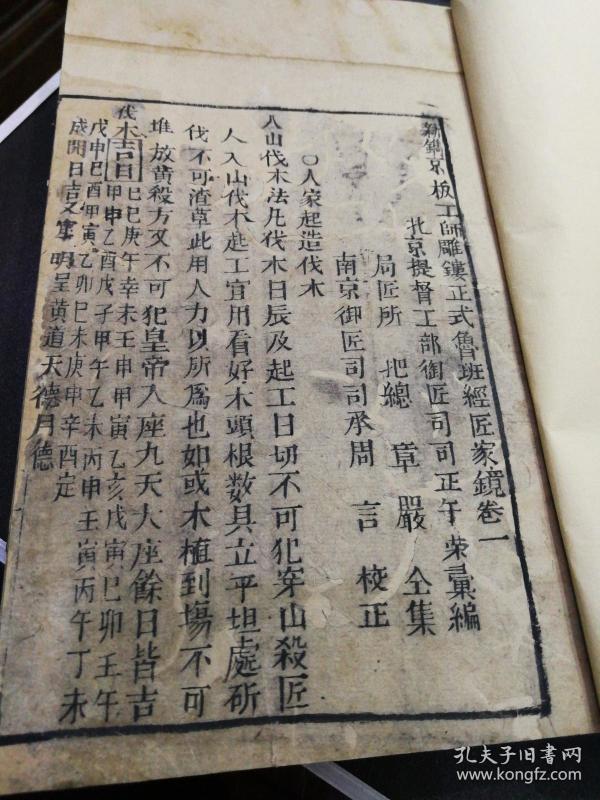 新鐫京板工師雕鏤正式魯班經匠家鏡卷一
北京提督工部御匠司司正午荣彙編
局匠所把總章嚴仝集
南京御匠司司承周言校正
○人家起造伐木
入山伐木法凡伐木日辰及起工日切不可犯穿山殺匠
人入山伐木起工宜用看好木頭根数具立平坦處斫
伐不可渣草此用人力以所爲也如或木植到塲不可
堆放黄殺方又不可犯皇帝八座九天大座餘日皆吉
伐木吉日己巳庚午辛未壬申甲寅乙亥戊寅己卯壬午
甲申乙酉戊子甲午乙未丙申壬寅丙午丁未
戊申己酉甲寅乙卯己未庚申辛酉定
成開日吉又宜明星黄道天德月德
孔夫子旧书网
www.kongfz.com